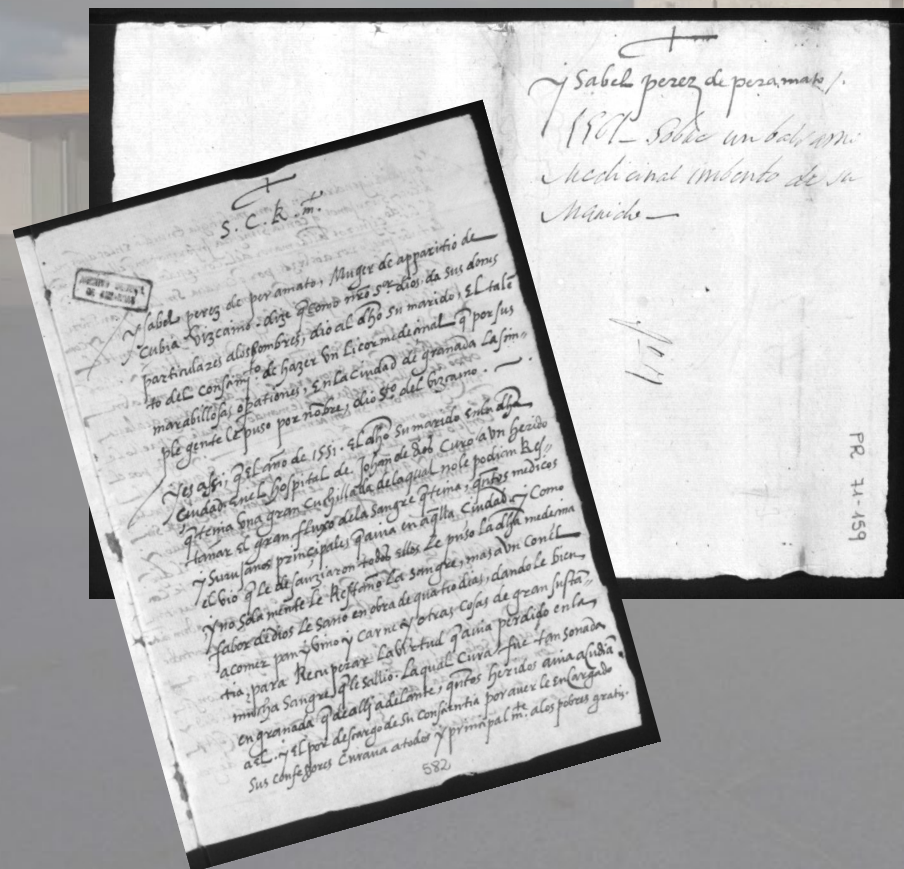 S. C. R. mt.
ysabel perez de peramato, Muger de apparitio de
Cubia Vizcaino. dize q como nro Sor dios, da sus dones
particulares alos hombres, dio al dho Su marido, El tale
to del Consamto. de hazer Vn Licor medecinal q por sus
marabillosas opationes, En la Ciudad de granada La sim-
ple gente le puso por nobre, olio Sto del bizcaino.
yes assi, q El año de 1551. El dho Su marido En la dha
Ciudad, En el hospital de Johan de dios Curo a vn herido
q tenia Vna gran Cuchillada de la qual no le podian Res-
tañar El gran fluxo de la Sangre q tenia, qntos medicos
y Surujanos principales avia en aqlla Ciudad. y Como
el vio q le desauziaron todos ellos Le puso La dha medecina
y no Sola mente le Restaño La Sangre, mas avn con el
fabor de dios Le Sano en obra de quatro dias, dando le bien
a comer pan y vino y Carne y otras Cosas de gran susta-
tia, para Recuperar La Virtud q avia perdido en la
mucha Sangre q le salio. La qual Cura fue tan sonada
en granada q de alli adelante, qntos heridos avia acudia
a el. y El por descargo de Su Consaentia por aver le encargado
Sus confesores Curava a todos y principal mte. a los pobres gratis.
582
ysabel perez de peramato/.
Sobre un balsamo
Medicinal imbento de su
Marido
PR. 71-159